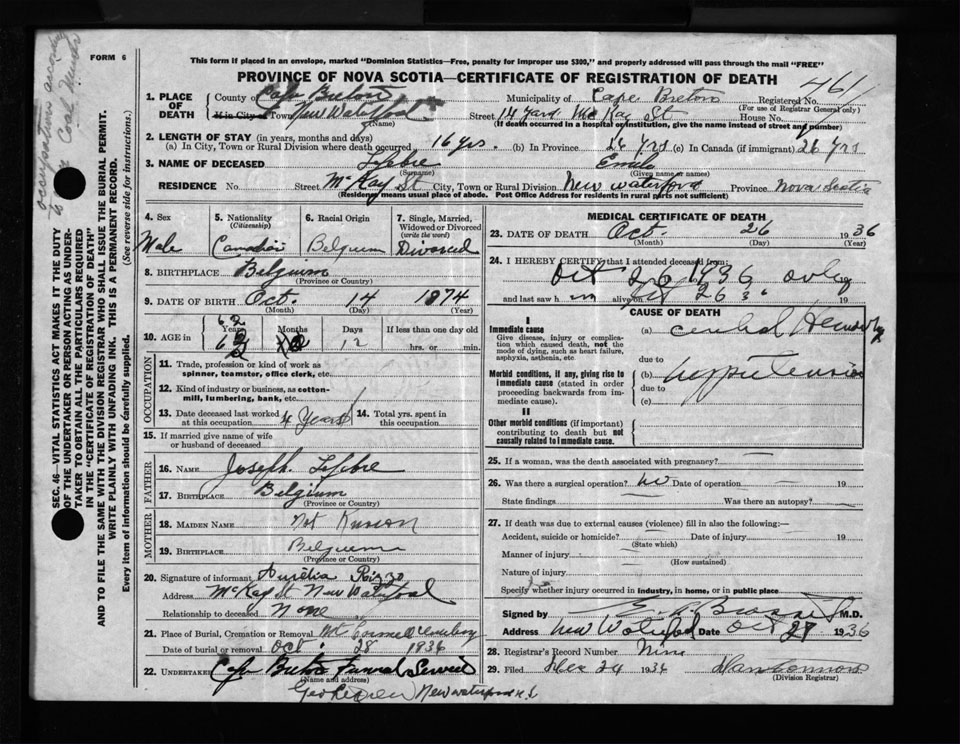 Occupation according
to Coal Miner
FORM 6
This form if placed in an envelope, marked "Dominion Statistics—Free, penalty for improper use $300," and properly addressed will pass through the mail "FREE"
PROVINCE OF NOVA SCOTIA—CERTIFICATE OF REGISTRATION OF DEATH
461
1. PLACE OF DEATH County of Cape Breton Municipality of Cape Breton Registered No.
(For use of Registrar General only)
If in City or Town New Waterford Street 14 Yard McKay St House No.
(Name) (If death occurred in a hospital or institution, give the name instead of street and number)
2. LENGTH OF STAY (in years, months and days)
(a) In City, Town or Rural Division where death occurred 16 yrs. (b) In Province 26 Yrs (c) In Canada (if immigrant) 26 Yrs
3. NAME OF DECEASED Lefebre Emile
(Surname) (Given name or names)
RESIDENCE No. Street McKay St City, Town or Rural Division New Waterford Province Nova Scotia
(Residence means usual place of abode. Post Office Address for residents in rural parts not sufficient)
SEC. 46—VITAL STATISTICS ACT MAKES IT THE DUTY
OF THE UNDERTAKER OR PERSON ACTING AS UNDER-
TAKER TO OBTAIN ALL THE PARTICULARS REQUIRED
IN THE "CERTIFICATE OF REGISTRATION OF DEATH"
AND TO FILE THE SAME WITH THE DIVISION REGISTRAR WHO SHALL ISSUE THE BURIAL PERMIT.
WRITE PLAINLY WITH UNFADING INK. THIS IS A PERMANENT RECORD.
Every item of information should be carefully supplied. (See reverse side for instructions.)
4. Sex 5. Nationality (Citizenship) 6. Racial Origin 7. Single, Married, Widowed or Divorced (write the word)
Male Canadian Belguim Divorced
8. BIRTHPLACE Belguim
(Province or Country)
9. DATE OF BIRTH Oct. 14 1874
(Month) (Day) (Year)
10. AGE in Years Months Days If less than one day old
62 12 hrs. or min.
OCCUPATION
11. Trade, profession or kind of work as spinner, teamster, office clerk, etc.
12. Kind of industry or business, as cotton-mill, lumbering, bank, etc.
13. Date deceased last worked at this occupation 4 Years 14. Total yrs. spent in this occupation
15. If married give name of wife or husband of deceased
FATHER
16. NAME Joseph Lefebre
17. BIRTHPLACE Belgium
(Province or Country)
MOTHER
18. MAIDEN NAME Not Known
19. BIRTHPLACE Belguim
(Province or Country)
20. Signature of informant Aurelia Rizzo
Address McKay St New Waterford
Relationship to deceased None
21. Place of Burial, Cremation or Removal Mt Carmel Cemetery
Date of burial or removal Oct. 28 1936
22. UNDERTAKER Cape Breton Funeral Service
(Name and address)
New Waterford N.S.
MEDICAL CERTIFICATE OF DEATH
23. DATE OF DEATH Oct. 26 1936
(Month) (Day) (Year)
24. I HEREBY CERTIFY that I attended deceased from:
Oct 26 1936 only 19
and last saw h im alive on Oct 26 36 19
CAUSE OF DEATH
I
Immediate cause (a) Cerebral Hemorrhage
Give disease, injury or complication which caused death, not the mode of dying, such as heart failure, asphyxia, asthenia, etc
due to
Morbid conditions, if any, giving rise to immediate cause (stated in order proceeding backwards from immediate cause).
(b) Hypertension
due to
(c)
II
Other morbid conditions (if important) contributing to death but not causally related to immediate cause.
25. If a woman, was the death associated with pregnancy?
26. Was there a surgical operation? No Date of operation 19
State findings Was there an autopsy?
27. If death was due to external causes (violence) fill in also the following:—
Accident, suicide or homicide? Date of injury 19
(State which)
Manner of injury
(How sustained)
Nature of injury
Specify whether injury occurred in industry, in home, or in public place
Signed by M.D.
Address New Waterford Date Oct 27 1936
28. Registrar's Record Number Nine
29. Filed Dec 24 1936
(Division Registrar)